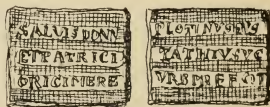 SALVISDDNN
ETPATRICI
ORICIMERE
PLOTINVSEVS
TATHIVSVC
VRBPRFECIT